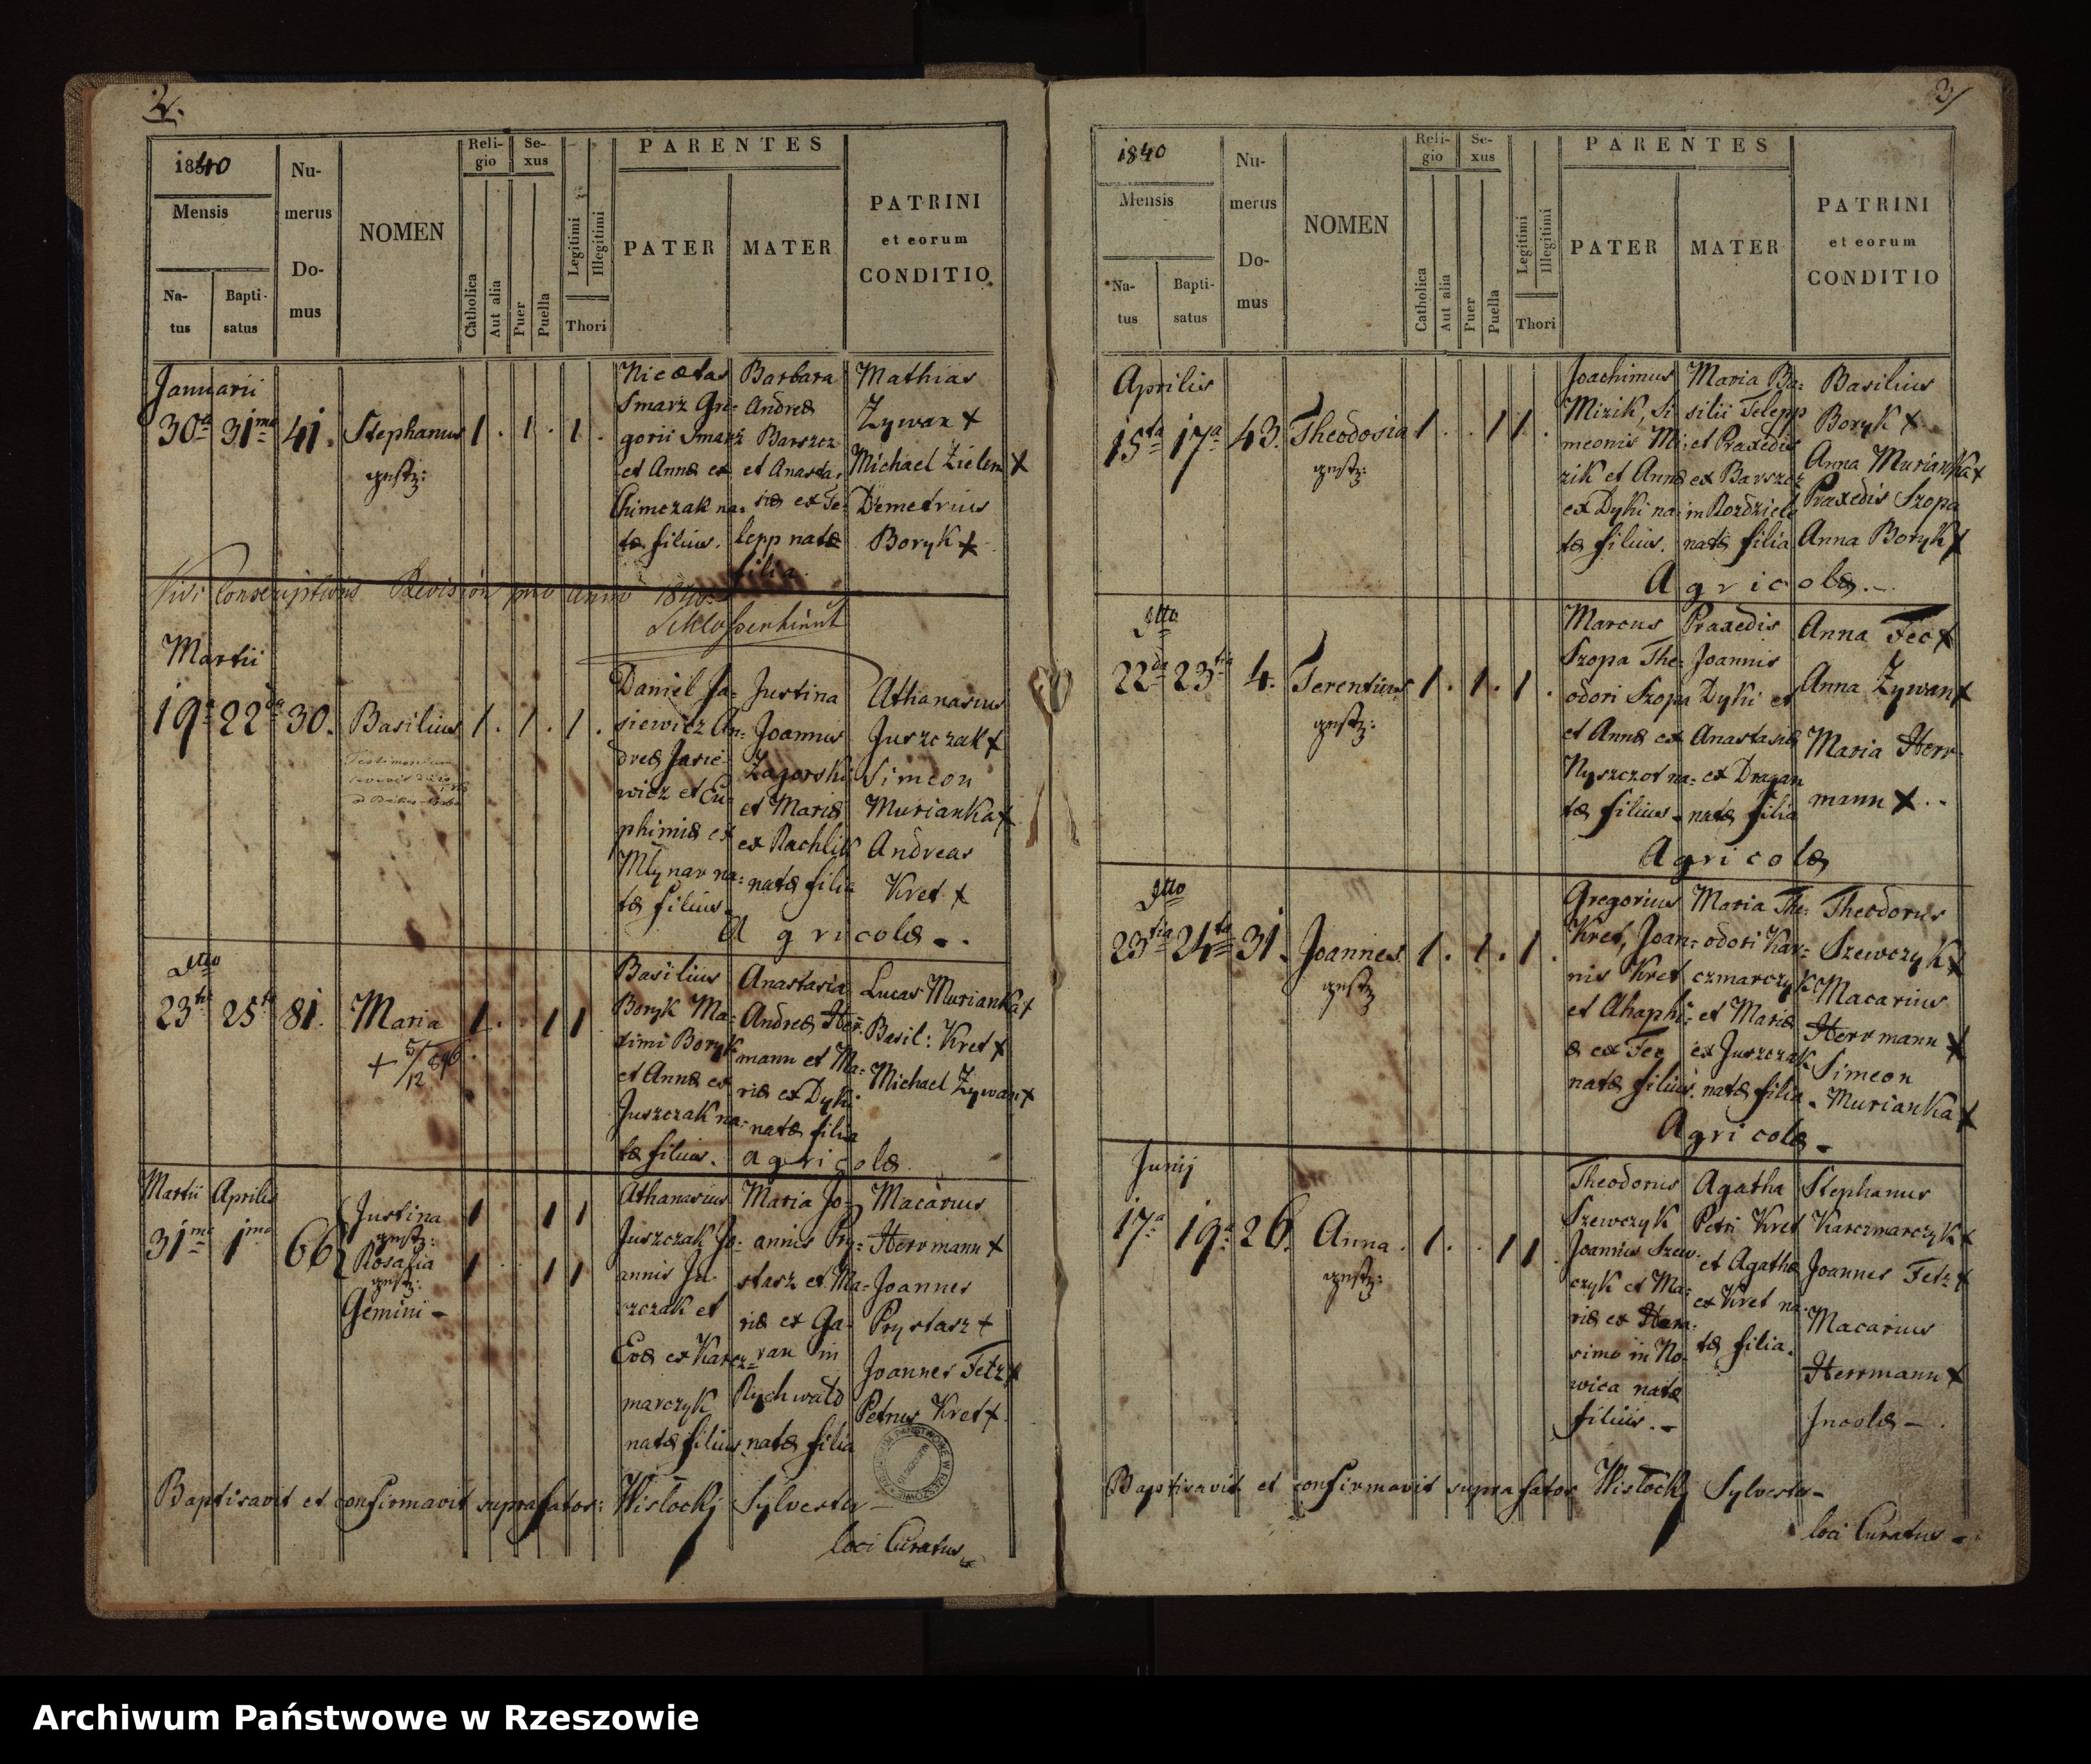 2.
1840
Mensis
Na-
tus
Bapti-
satus
Nu-
merus
Do-
mus
NOMEN
Reli-
gio
Catholica
Aut alia
Se-
xus
Puer
Puella
Legitimi
Illegitimi
Thori
PARENTES
PATER
MATER
PATRINI
et eorum
CONDITIO
Januarii
30ta 31ma 41. Stephanus 1 . 1 . 1 .
Nicetas
Smarz Gre=
gorii Smarz
et Annæ ex
Chimczak na=
tæ filius.
Barbara
Andreæ
Barszcz
et Anasta=
siæ ex Te=
lepp natæ
filia.
Mathias
Zywan +
Michael Zielem +
Demetrius
Boryk +
Vidi Conscriptions Revision pro anno 1840
Martii
19a 22da 30. Basilius 1 . 1 . 1 .
Testimonium
Daniel Ja=
siewicz An=
dreæ Jasie=
wicz et Eu=
phimiæ ex
Młynar na=
tæ filius.
Justina
Joannis
Zagorski
et Mariæ
ex Rachlik
natæ filia
Athanasius
Juszczak +
Simeon
Murianka +
Andreas
Kret +
Agricolæ.
Ditto
23tia 25ta 81. Maria 1 . . 1 1
+ 5/12 896
Basilius
Boryk Ma=
ximi Boryk
et Annæ ex
Juszczak na=
tæ filius.
Anastasia
Andreæ Her=
mann et Ma=
riæ ex Dyki
natæ filia
Lucas Murianka +
Basil: Kret +
Michael Zywan +
agricolæ.
Martii Aprilis
31ma 1ma 66 Justina 1 1 1
Rosalia 1 1 1
Gemini -
Athanasius
Juszczak Jo=
annis Ju=
szczak et
Evæ ex Karcz=
marczyk
natæ filius
Maria Jo=
annis Pry=
stasz et Ma=
riæ ex Ga=
ran in
Rychwałd
natæ filia
Macarius
Herrmann +
Joannes
Prystasz +
Joannes Fetz +
Petrus Kret +
Baptisavit et confirmavit suprafator: Wisłocki Sylvester
loci Curatus
3/
1840
Mensis
Na-
tus
Bapti-
satus
Nu-
merus
Do-
mus
NOMEN
Reli-
gio
Catholica
Aut alia
Se-
xus
Puer
Puella
Legitimi
Illegitimi
Thori
PARENTES
PATER
MATER
PATRINI
et eorum
CONDITIO
Aprilis
15ta 17a 43. Theodosia 1 . . 1 1 .
Joachimus
Mizik, Si=
meonis Mi=
zik et Annæ
ex Dyki na=
tæ filius.
Maria Ba=
silii Telepp
et Praxedis
ex Barszcz
in Rozdziele
natæ filia
Basilius
Boryk +
Anna Murianka +
Praxedis Szopa
Anna Boryk +
Agricolæ.
Ditto
22da 23tia 4. Terentius 1 . 1 . 1 .
Marcus
Szopa The=
odori Szopa
et Annæ ex
Nyszczot na=
tæ filius.
Praxedis
Joannis
Dyki et
Anastasiæ
ex Dragan
natæ filia
Anna Fec +
Anna Zywan +
Maria Herr=
mann +
Agricolæ
Ditto
23tia 24ta 31. Joannes 1 . 1 . 1 .
Gregorius
Kret, Joan=
nis Kret
et Ahaphi=
æ ex Fec
natæ filius.
Maria The=
odori Kar=
czmarczyk
et Mariæ
ex Juszczak
natæ filia.
Theodorus
Szewczyk +
Macarius
Herrmann +
Simeon
Murianka +
Agricolæ
Junij
17a 19a 26. Anna 1 . . 1 1
Theodorus
Szewczyk
Joannis Szew=
czyk et Ma=
riæ ex Hara=
simo in No=
wica natæ
filius.
Agatha
Petri Kret
et Agathæ
ex Kret na=
tæ filia.
Stephanus
Karczmarczyk +
Joannes Fetz +
Macarius
Herrmann +
Incolæ
Baptisavit et confirmavit suprafator Wisłocki Sylvester
loci Curatus
Archiwum Państwowe w Rzeszowie